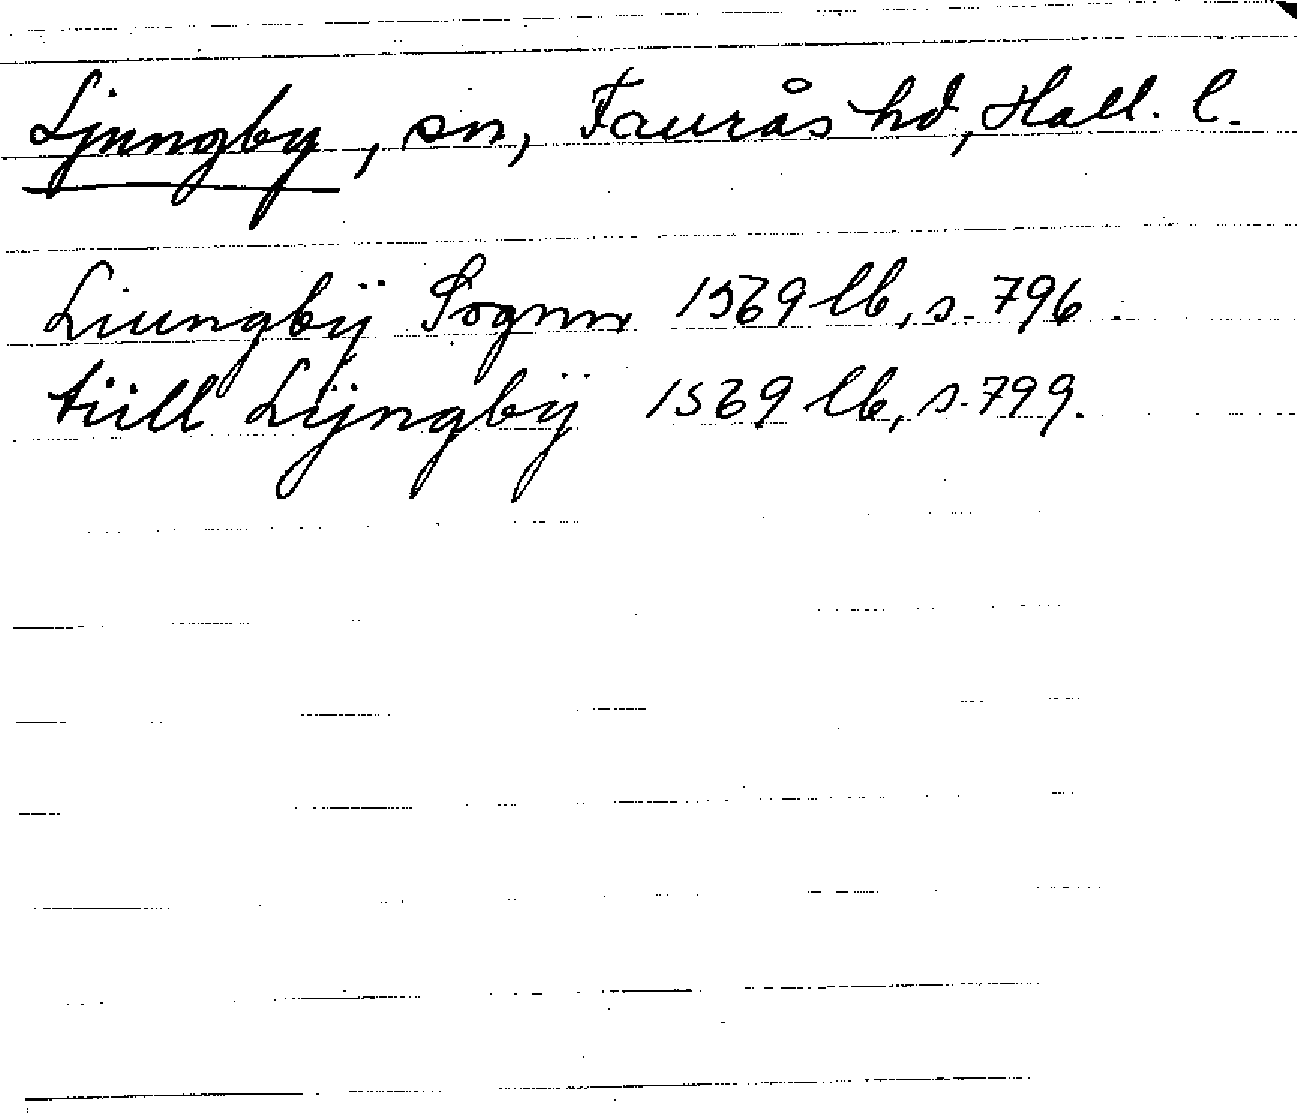 Ljungby, sn, Faurås hd, Hall. l.
Liungbÿ Sognn 1569 lb, s. 796.
tüll Lÿngbÿ 1569 lb, s. 799.